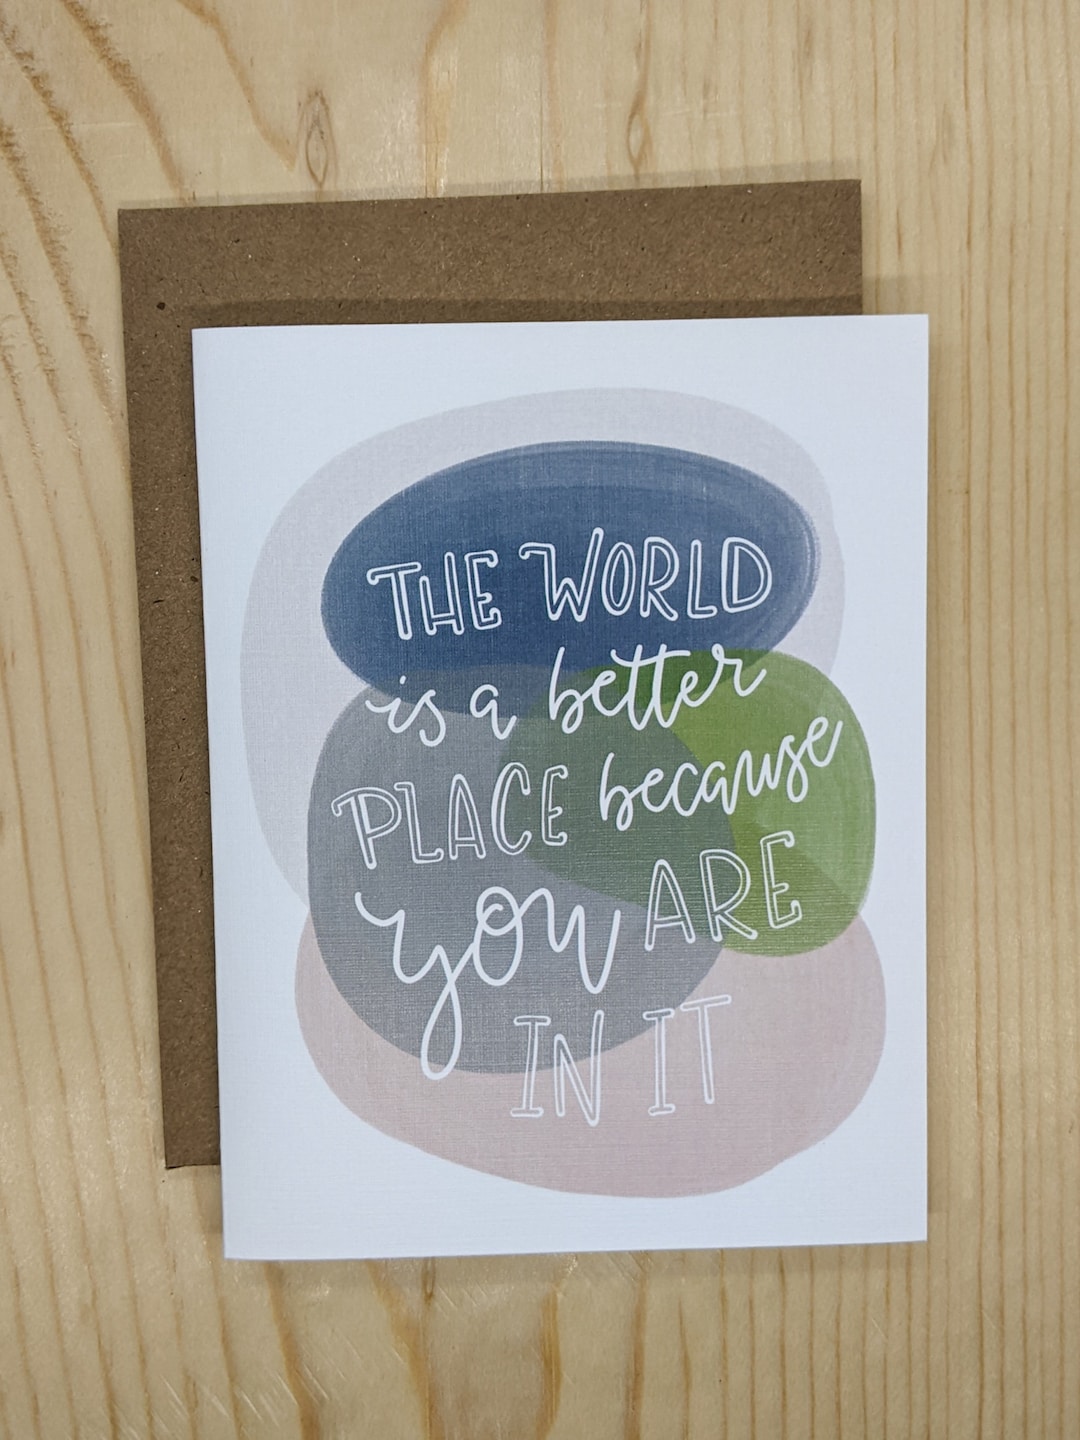 THE WORLD
is a better
PLACE because
you ARE
IN IT